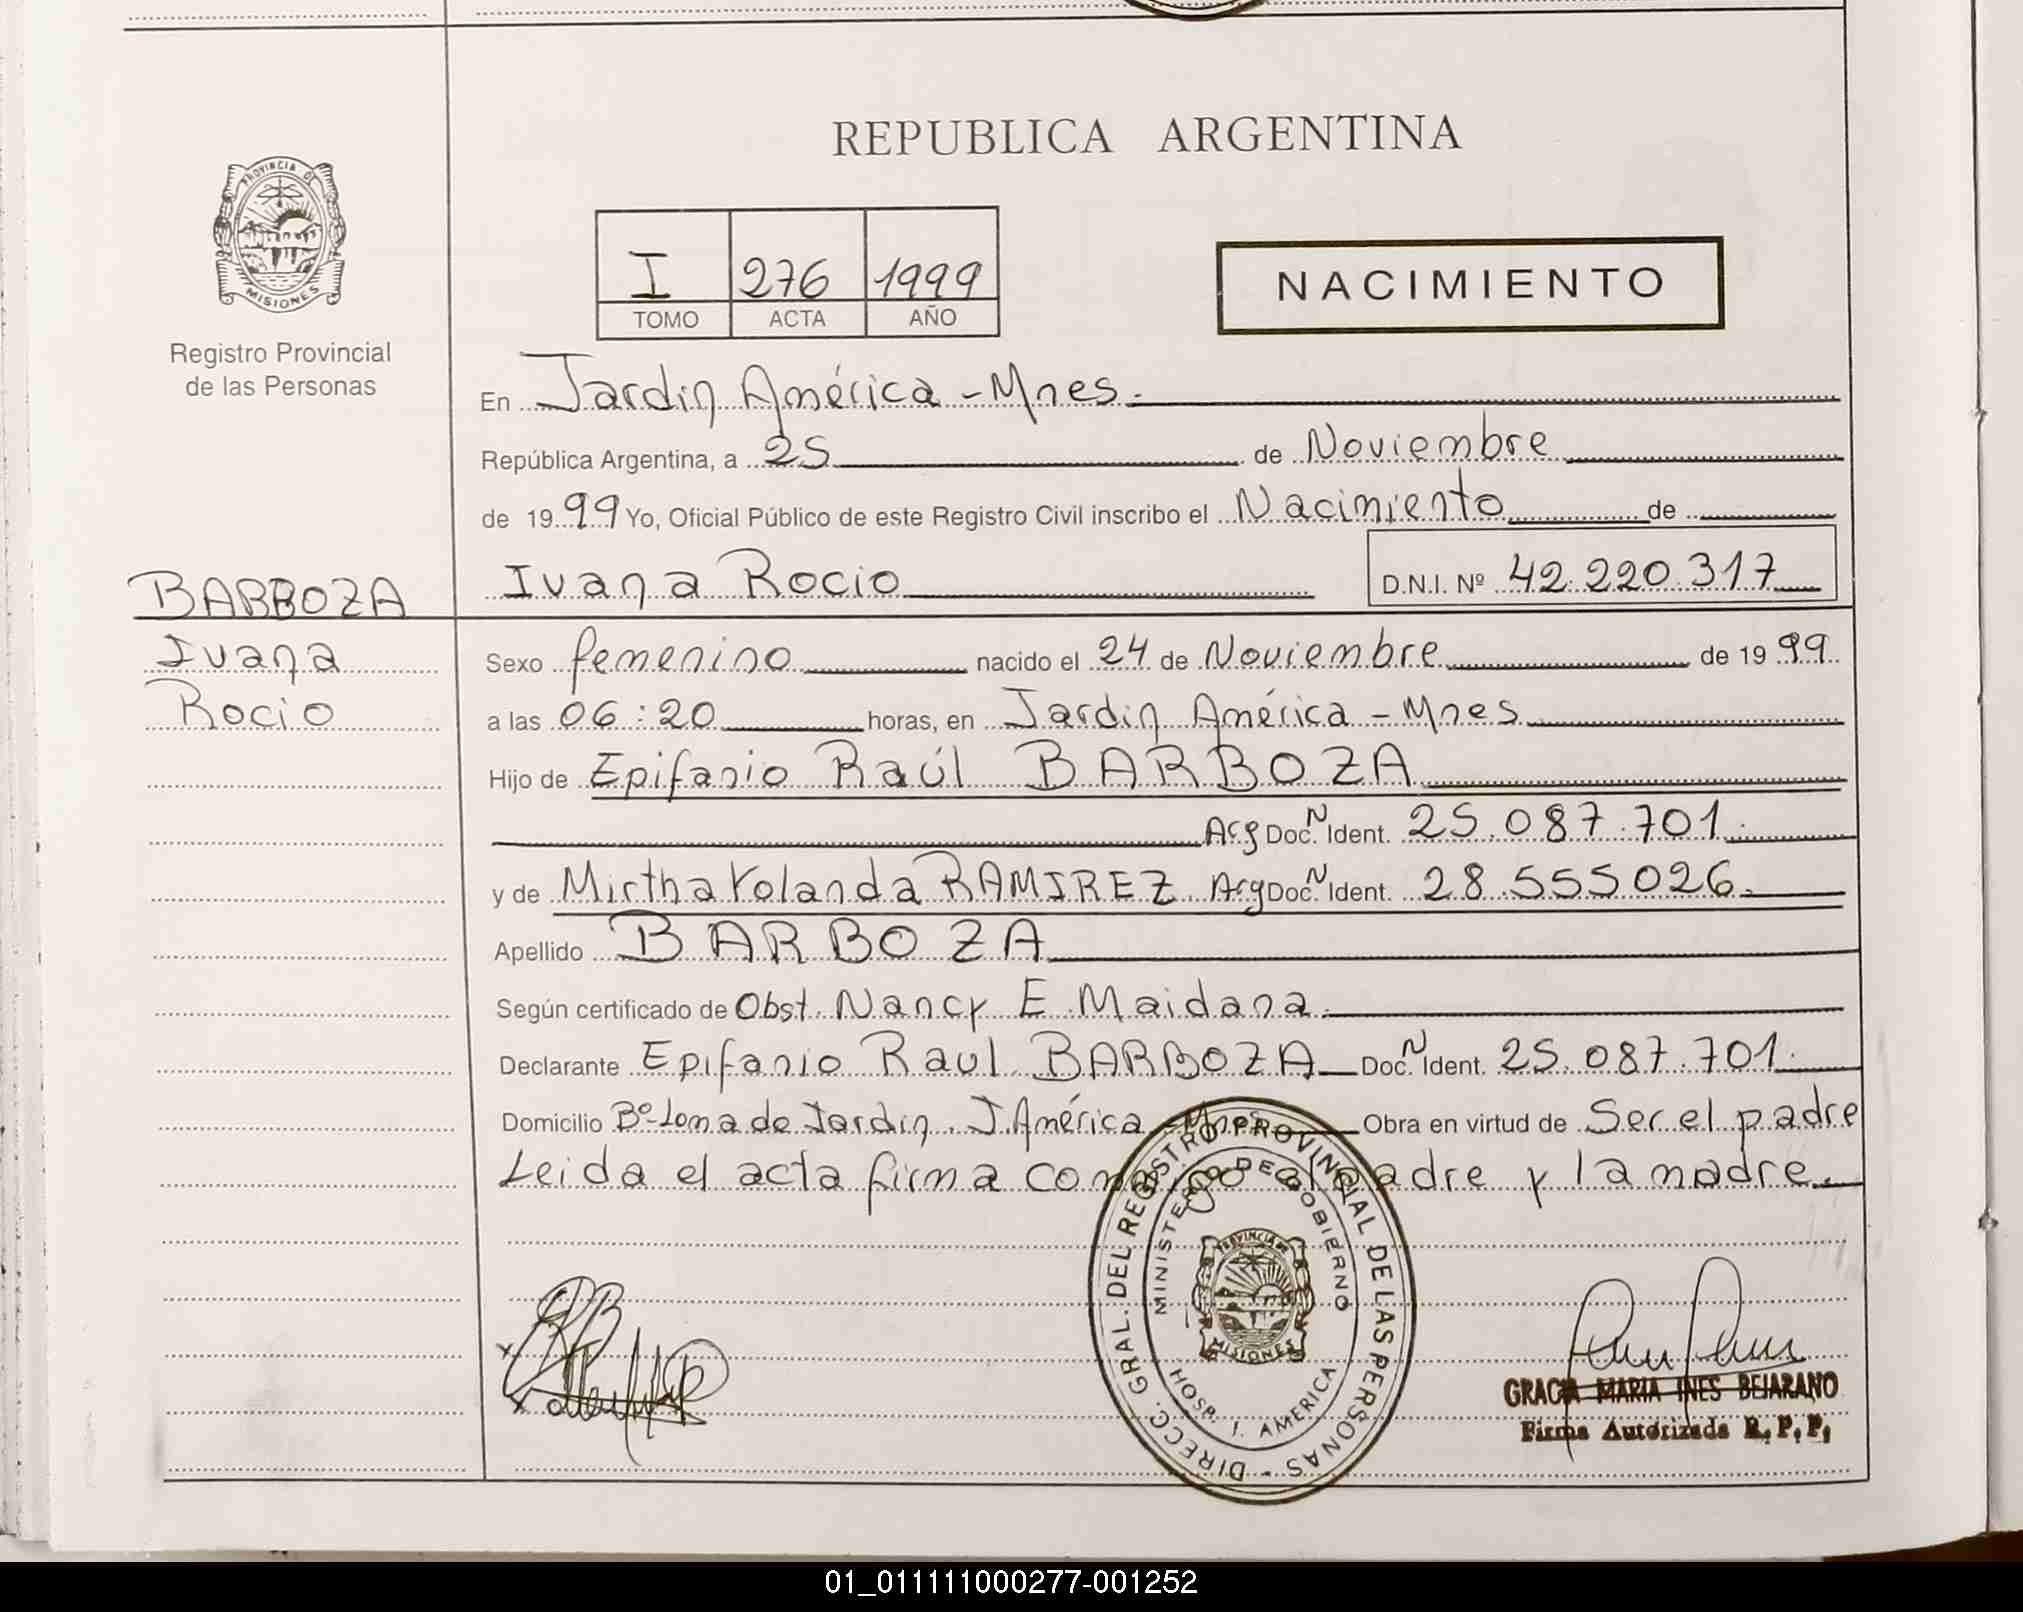 REPUBLICA ARGENTINA
PROVINCIA DE
MISIONES
Registro Provincial
de las Personas
I 276 1999
TOMO ACTA AÑO
NACIMIENTO
En Jardin América - Mnes.
República Argentina, a 25 de Noviembre
de 1999 Yo, Oficial Público de este Registro Civil inscribo el Nacimiento de
Ivana Rocio D.N.I. Nº 42.220.317
BARBOZA
Ivana
Rocio
Sexo femenino nacido el 24 de Noviembre de 1999
a las 06:20 horas, en Jardin América - Mnes
Hijo de Epifanio Raúl BARBOZA
Arg Doc. N Ident. 25.087.701.
y de Mirtha Yolanda RAMIREZ Arg Doc. N Ident. 28.555.026.
Apellido BARBOZA
Según certificado de Obst. Nancy E. Maidana.
Declarante Epifanio Raul BARBOZA Doc. N Ident. 25.087.701.
Domicilio Bº Loma de Jardin. J. América - Mnes Obra en virtud de Ser el padre
Leida el acta firma conmigo el padre y la madre.
DIRECC. GRAL. DEL REGISTRO PROVINCIAL DE LAS PERSONAS -
MINISTERIO DE GOBIERNO
PROVINCIA DE
MISIONES
HOSP. J. AMERICA
GRACIA MARIA INES BEJARANO
Firma Autorizada R. P. P.
01_011111000277-001252